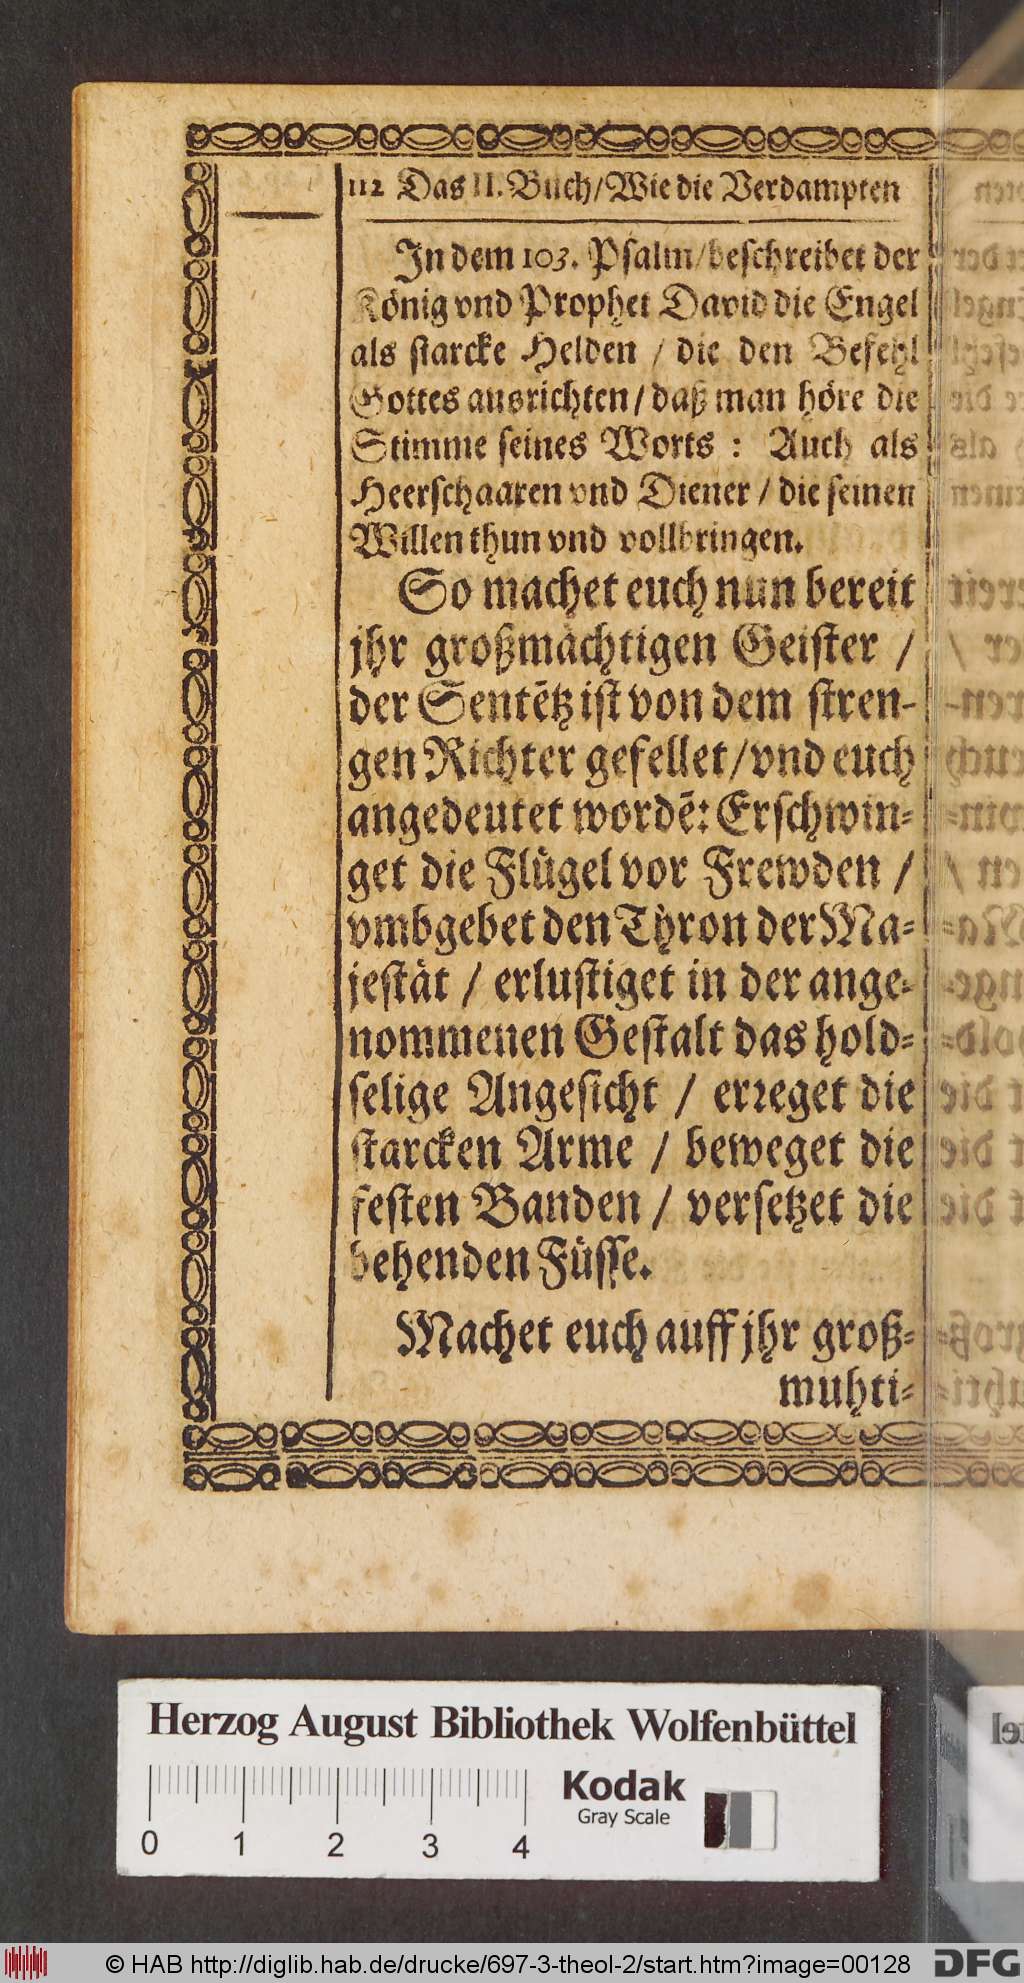 112 Das II. Buch/Wie die Verdampten
In dem 103. Psalm/beschreibet der
König vnd Prophet David die Engel
als starcke Helden / die den Befehl
Gottes ausrichten/daß man höre die
Stimme seines Worts : Auch als
Heerschaaren vnd Diener / die seinen
Willen thun vnd vollbringen.
So machet euch nun bereit
jhr großmächtigen Geister /
der Sentētz ist von dem stren-
gen Richter gefellet/vnd euch
angedeutet wordē: Erschwin-
get die Flügel vor Frewden /
vmbgebet den Thron der Ma-
jestät / erlustiget in der ange-
nommenen Gestalt das hold-
selige Angesicht / erreget die
starcken Arme / beweget die
festen Banden / versetzet die
behenden Füsse.
Machet euch auff jhr groß-
muhti-
Herzog August Bibliothek Wolfenbüttel
Kodak
Gray Scale
0 1 2 3 4
© HAB http://diglib.hab.de/drucke/697-3-theol-2/start.htm?image=00128
DFG